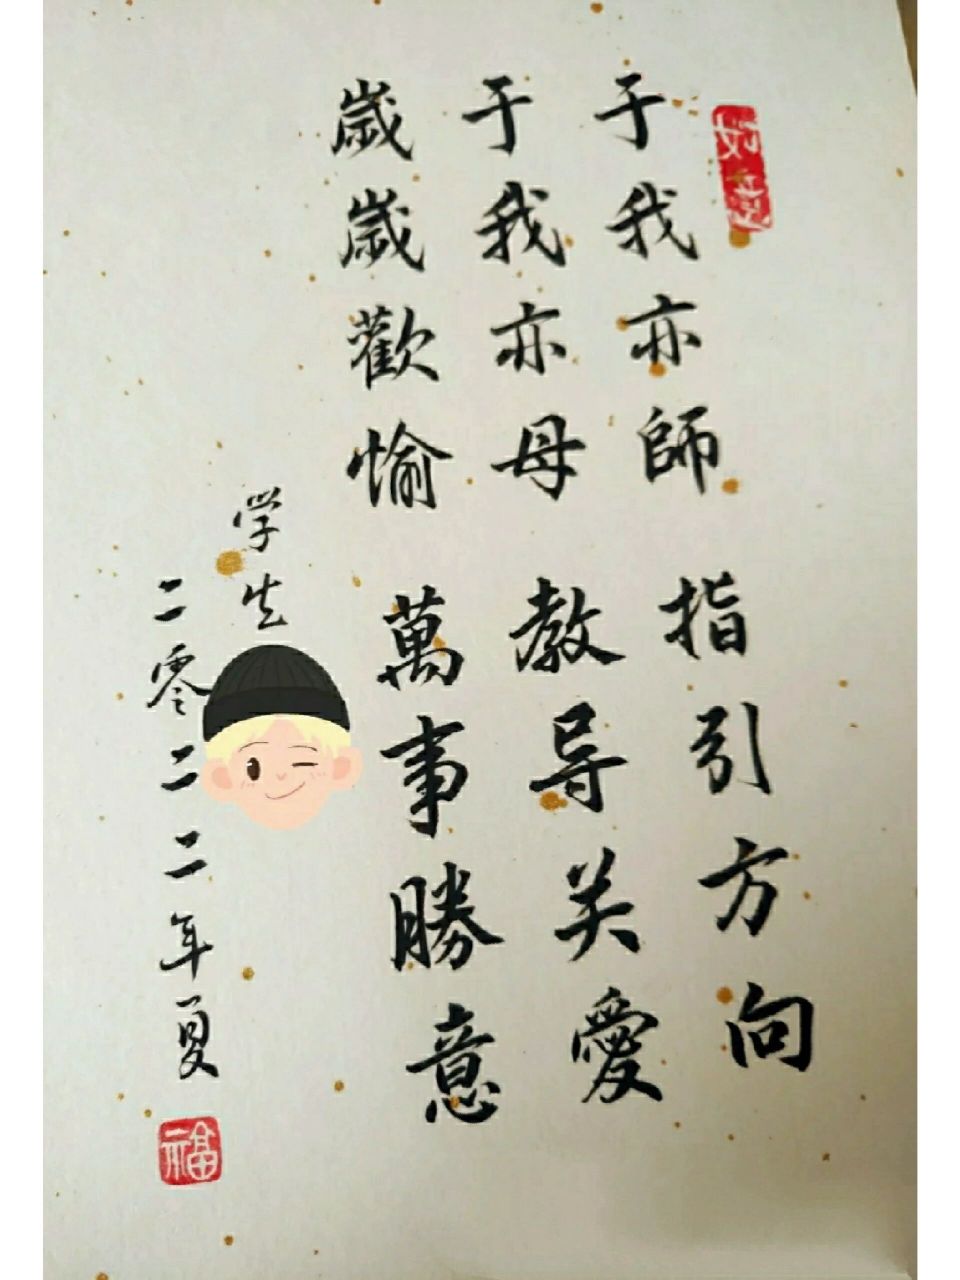 如意
于我亦師 指引方向
于我亦母 教导关愛
歲歲歡愉 萬事勝意
学生
二零二二年夏
福